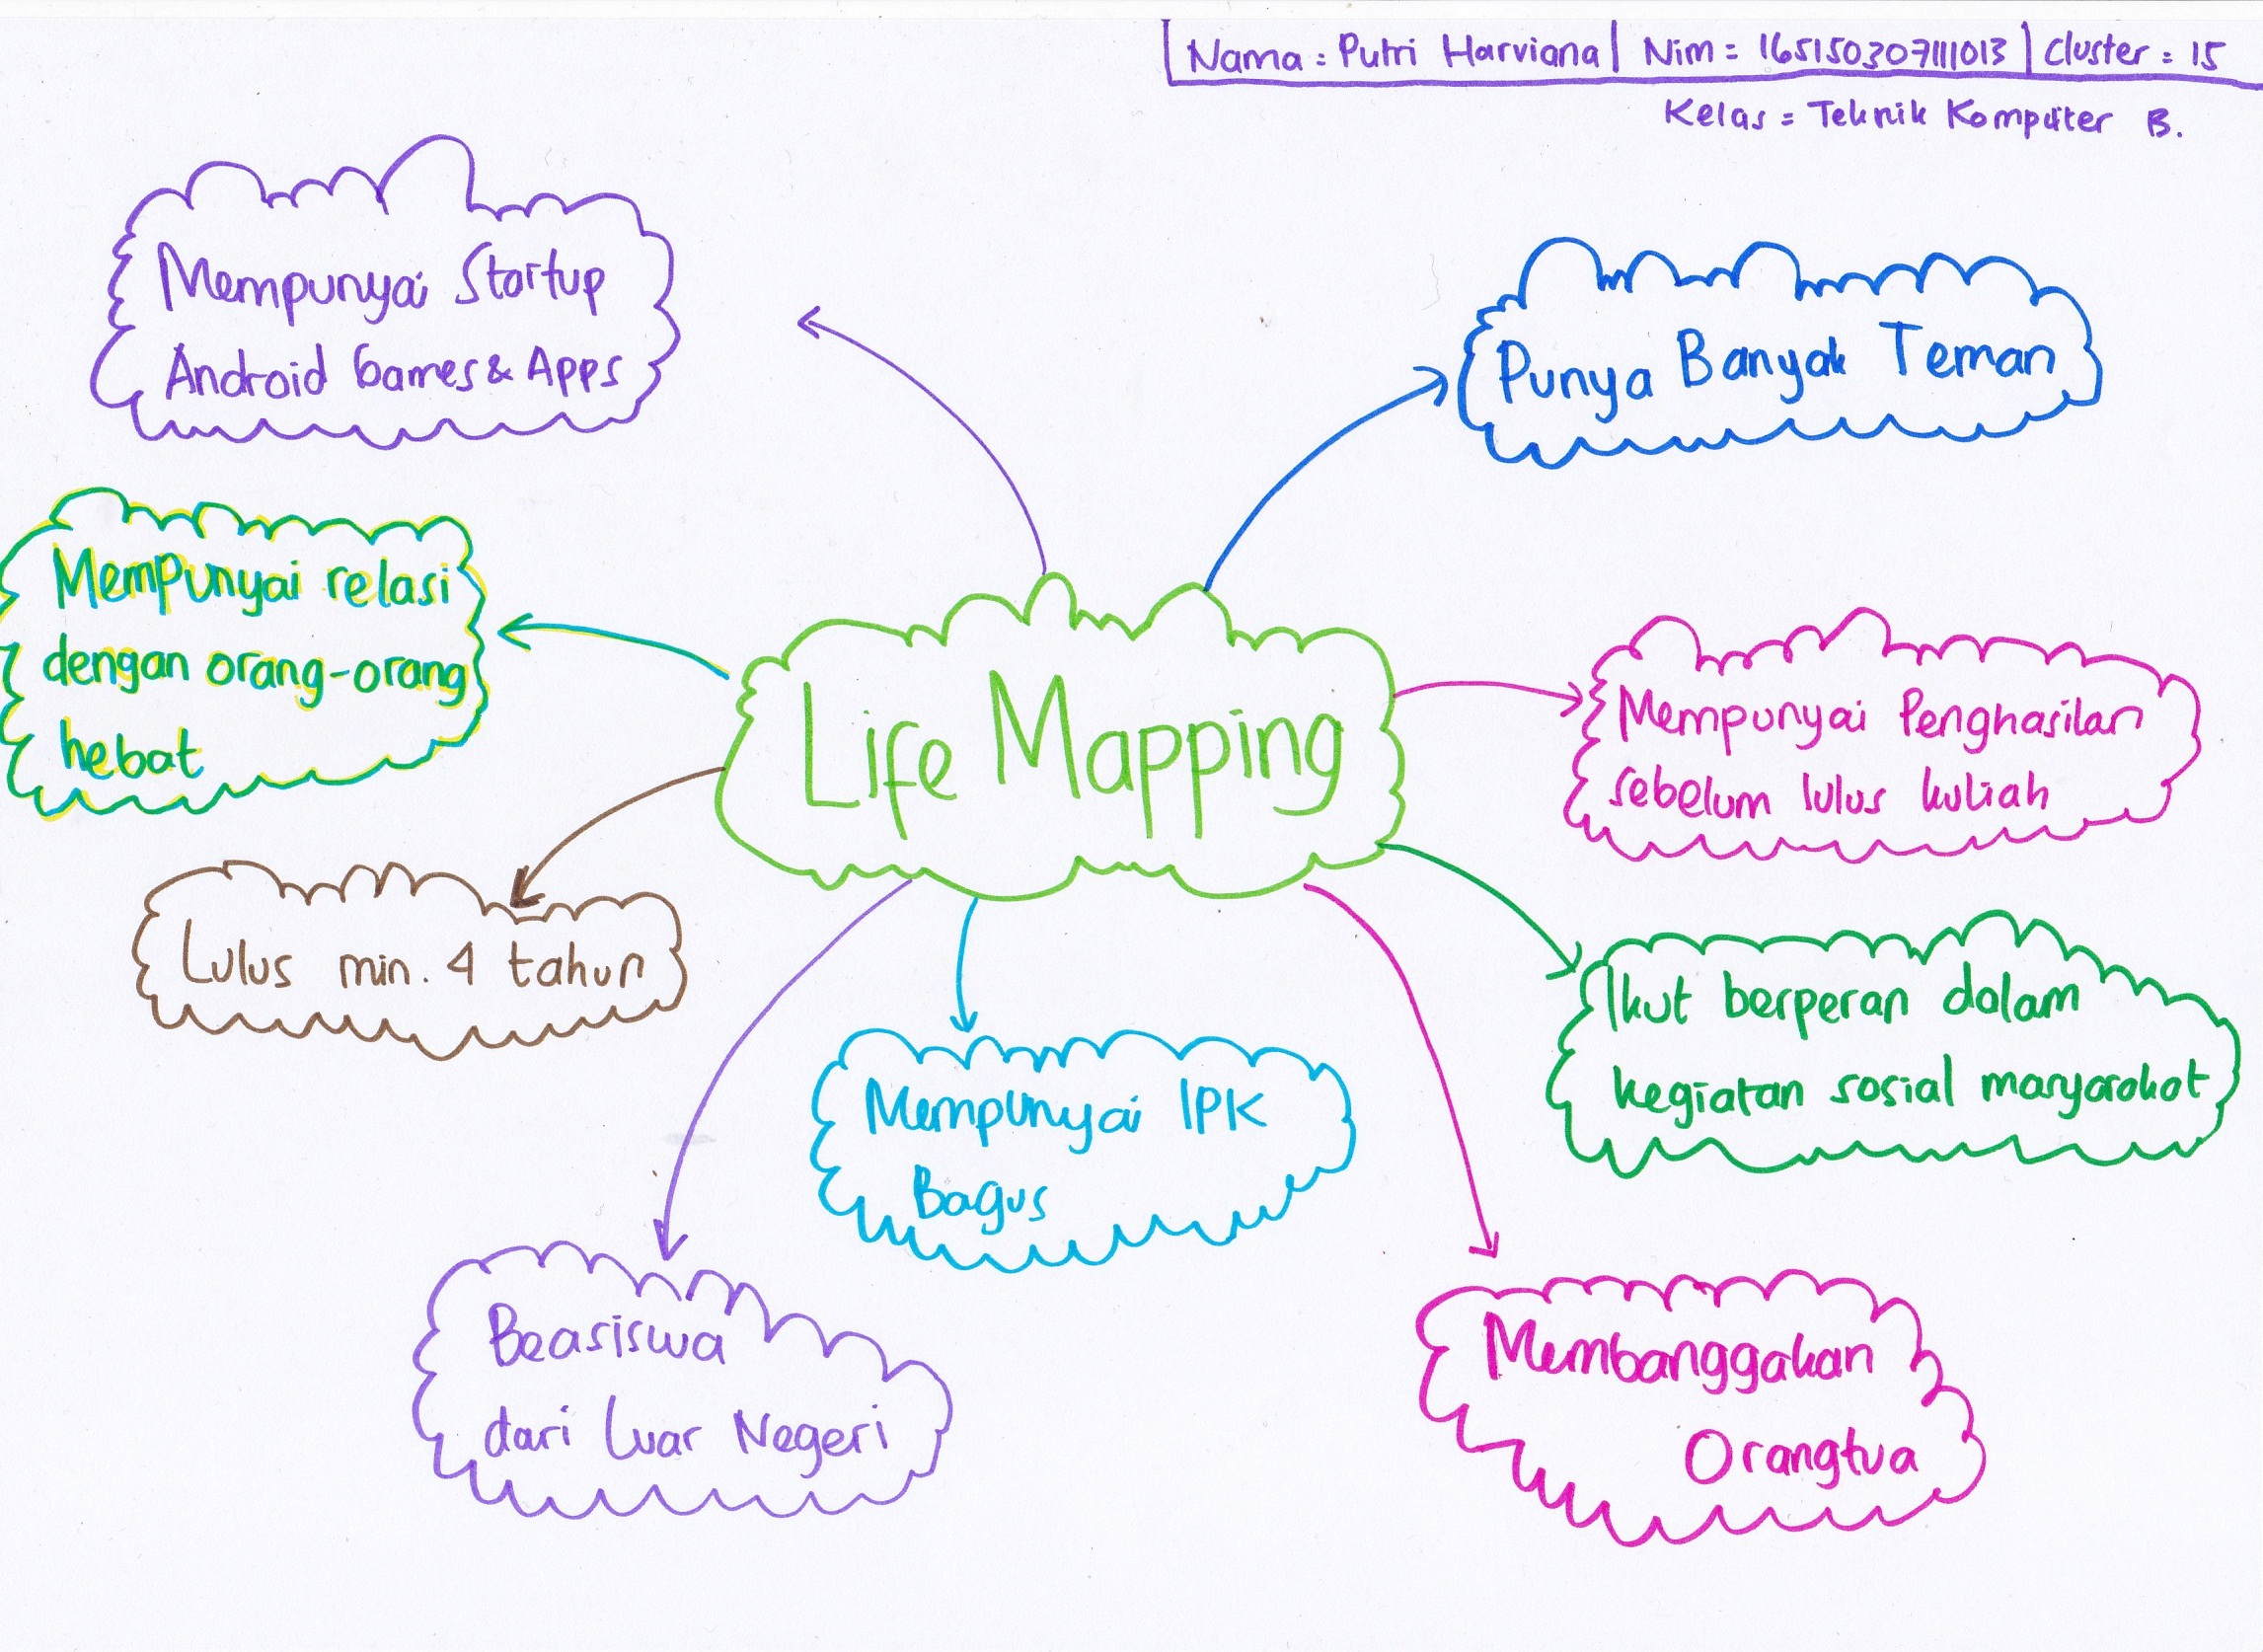 Nama : Putri Harviana | Nim = 165150307111013 | Cluster : 15
Kelas = Teknik Komputer B.
Mempunyai Startup
Android Games & Apps
Punya Banyak Teman
Mempunyai relasi
dengan orang-orang
hebat
Life Mapping
Mempunyai Penghasilan
sebelum lulus kuliah
Lulus min. 4 tahun
Ikut berperan dalam
kegiatan sosial masyarakat
Mempunyai IPK
Bagus
Beasiswa
dari Luar Negeri
Membanggakan
Orangtua